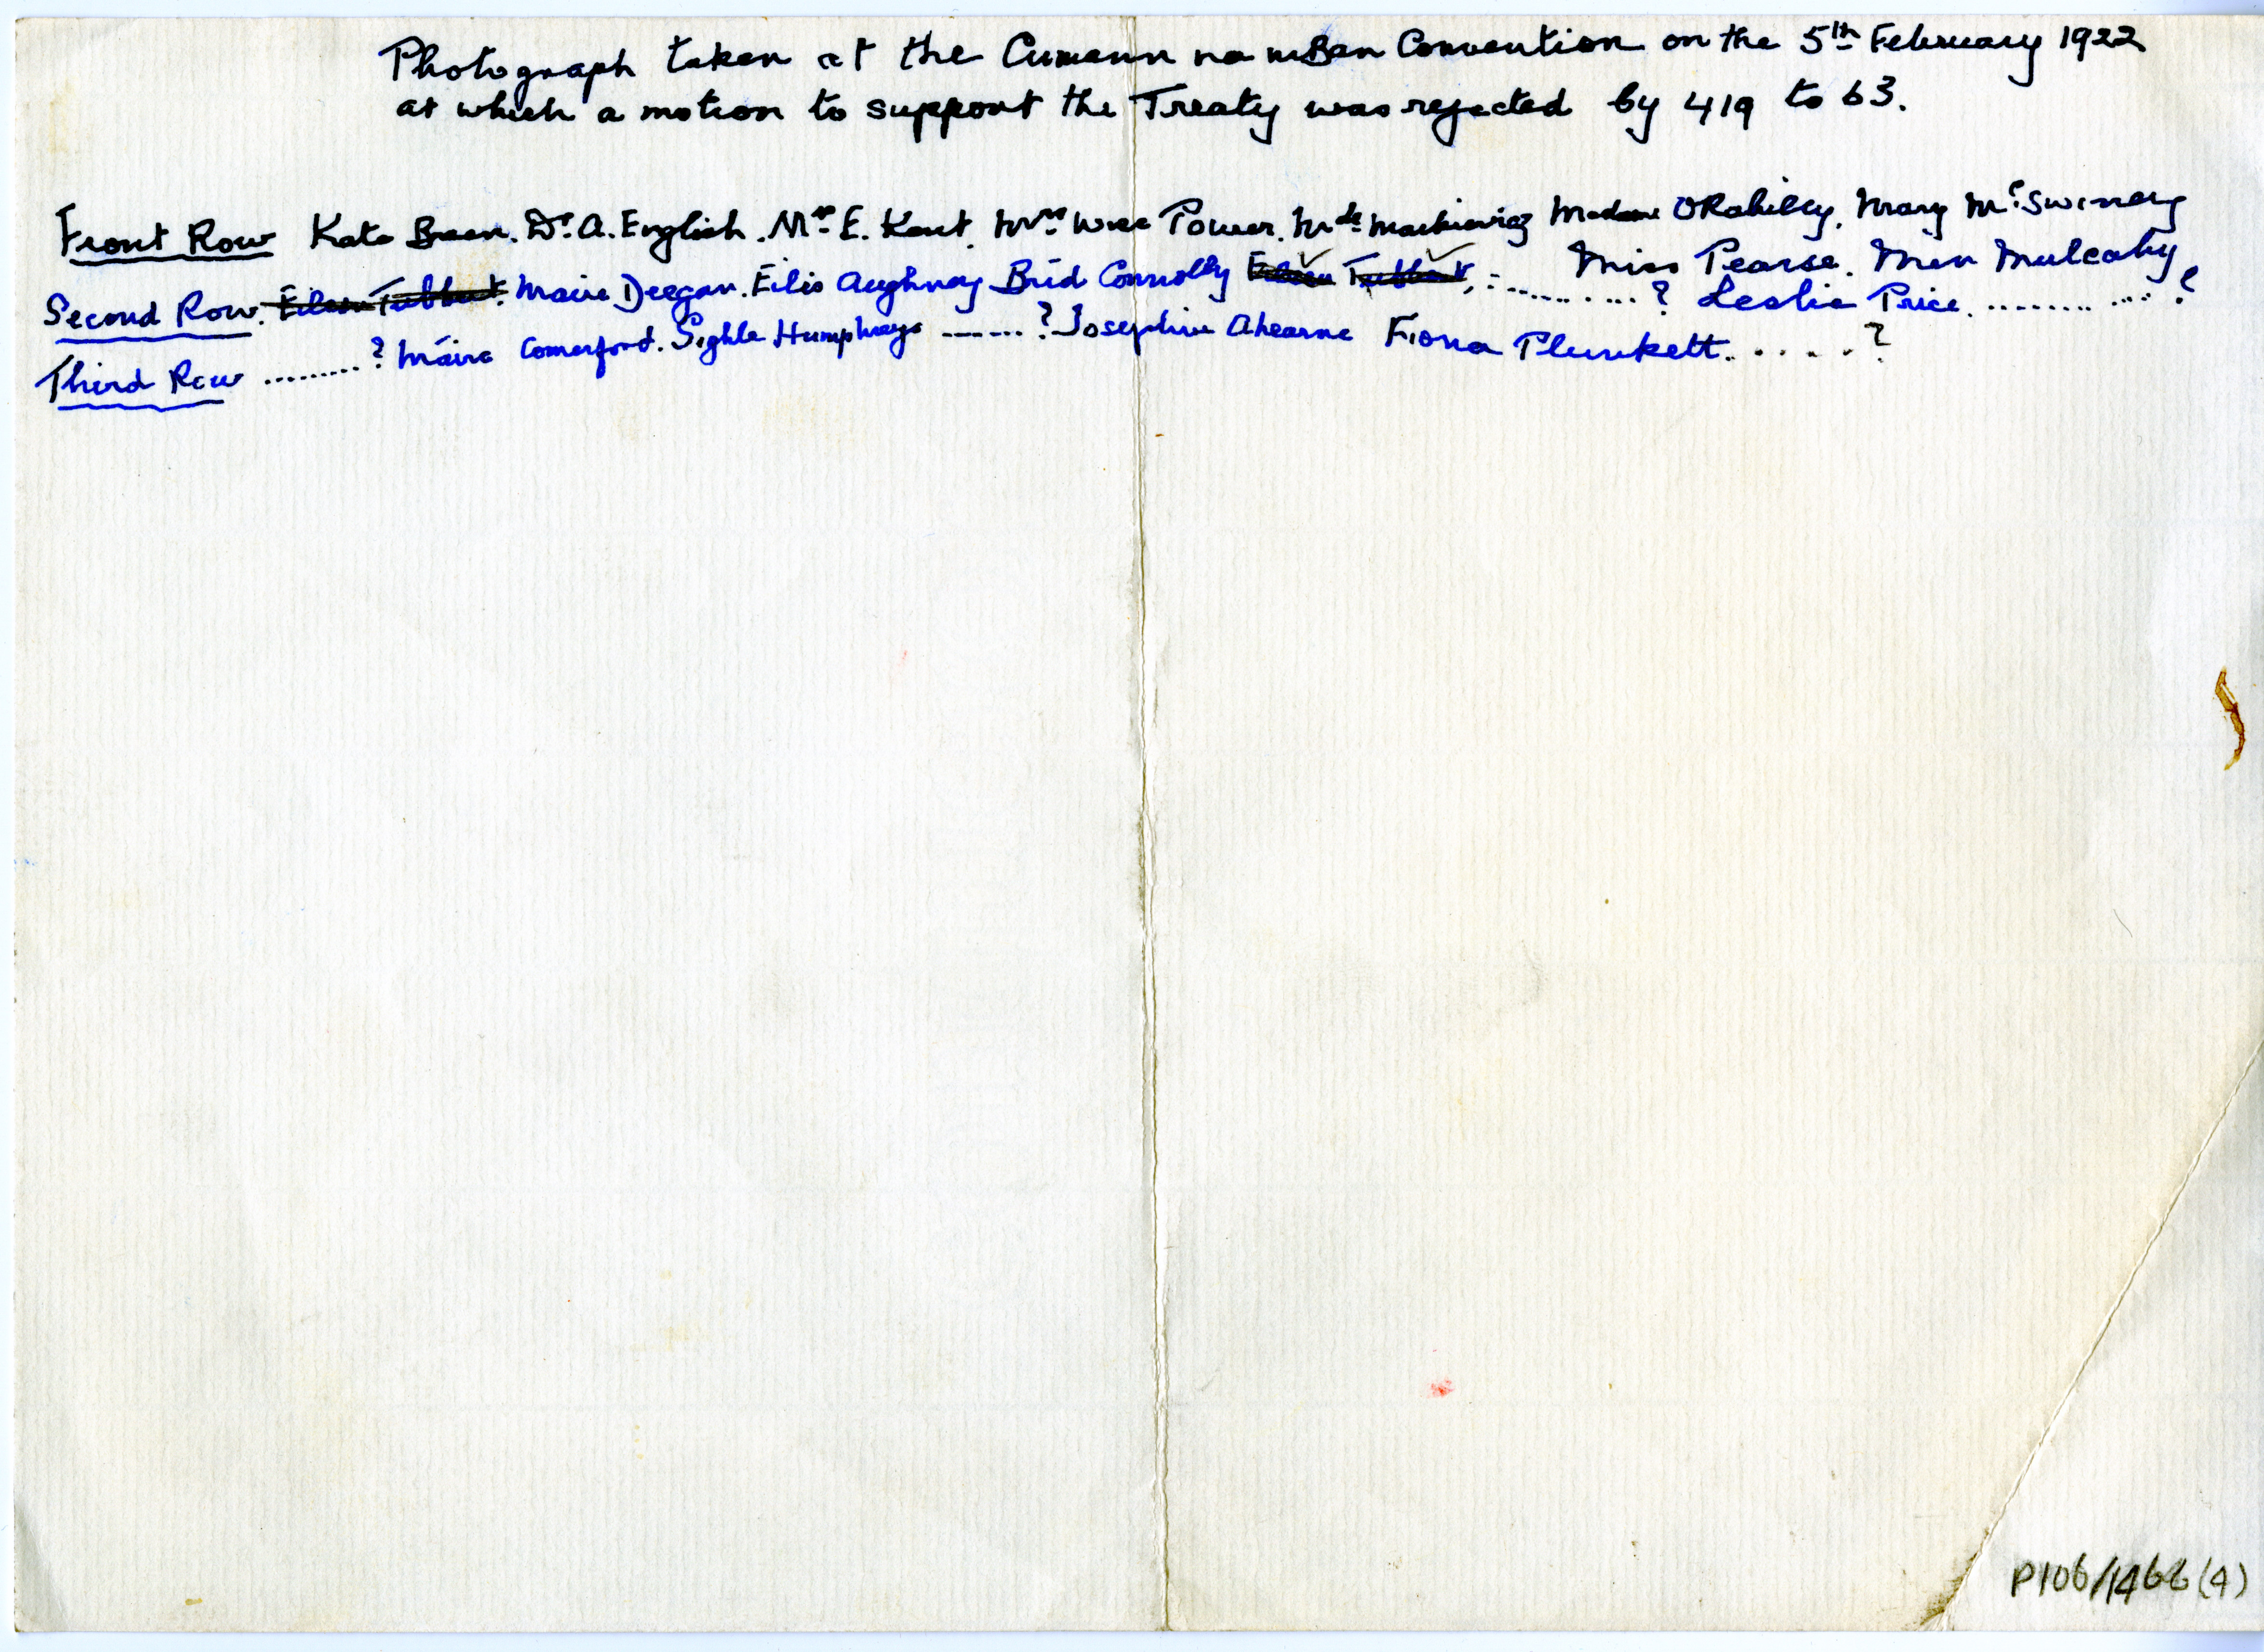 Photograph taken at the Cumann na mBan Convention on the 5th February 1922
at which a motion to support the Treaty was rejected by 419 to 63.
Front Row Kate Breen. Dr. A. English. Mrs E. Kent. Mrs Wise Power. Mde Markievicz Madame O'Rahilly. Mary McSwiney
Second Row. Eileen Tubbert. Maire Deegan. Eilis Aughney Bríd Connolly Eileen Tubbert, ..........? Miss Pearse. Min Mulcahy
Leslie Price. ............?
Third Row .........? Máire Comerford. Sighle Humphreys .......? Josephine Ahearne Fiona Plunkett. .....?
P106/1466(4)